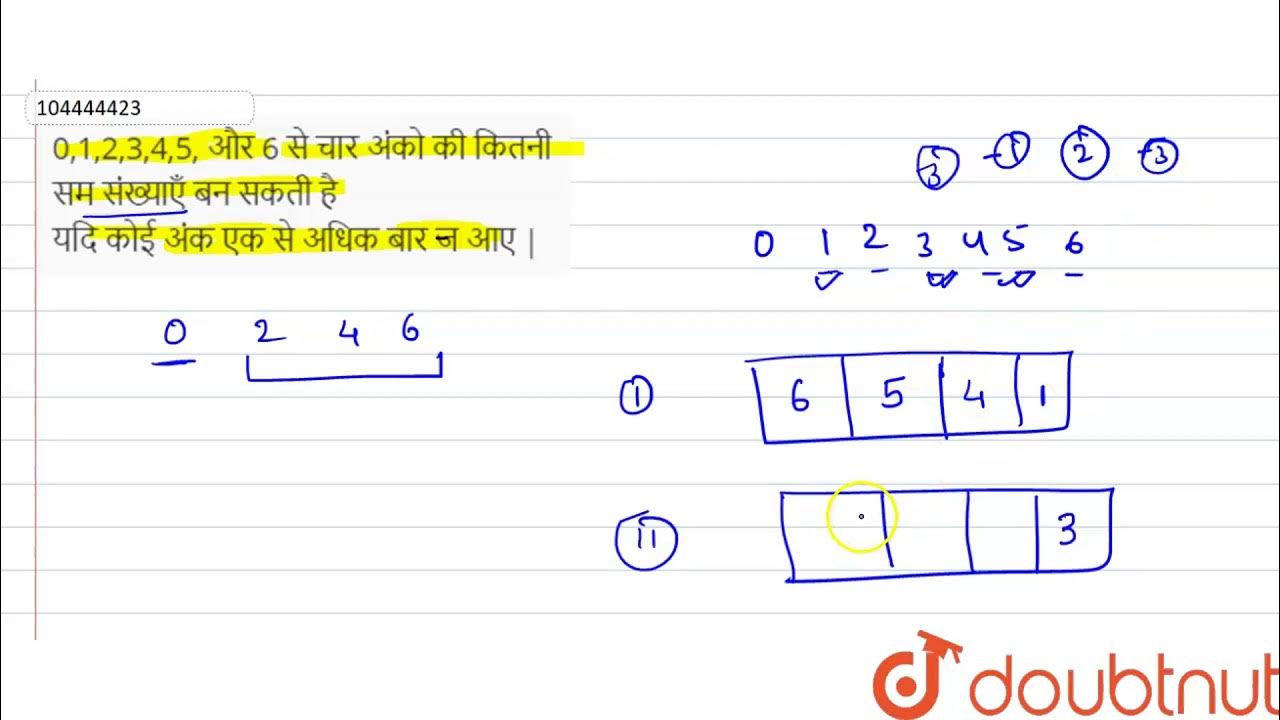 104444423
0,1,2,3,4,5, और 6 से चार अंको की कितनी
सम संख्याएँ बन सकती है
यदि कोई अंक एक से अधिक बार न आए |
3 1 2 3
0 1 2 3 4 5 6
0 2 4 6
1 6 5 4 1
11 3
doubtnut